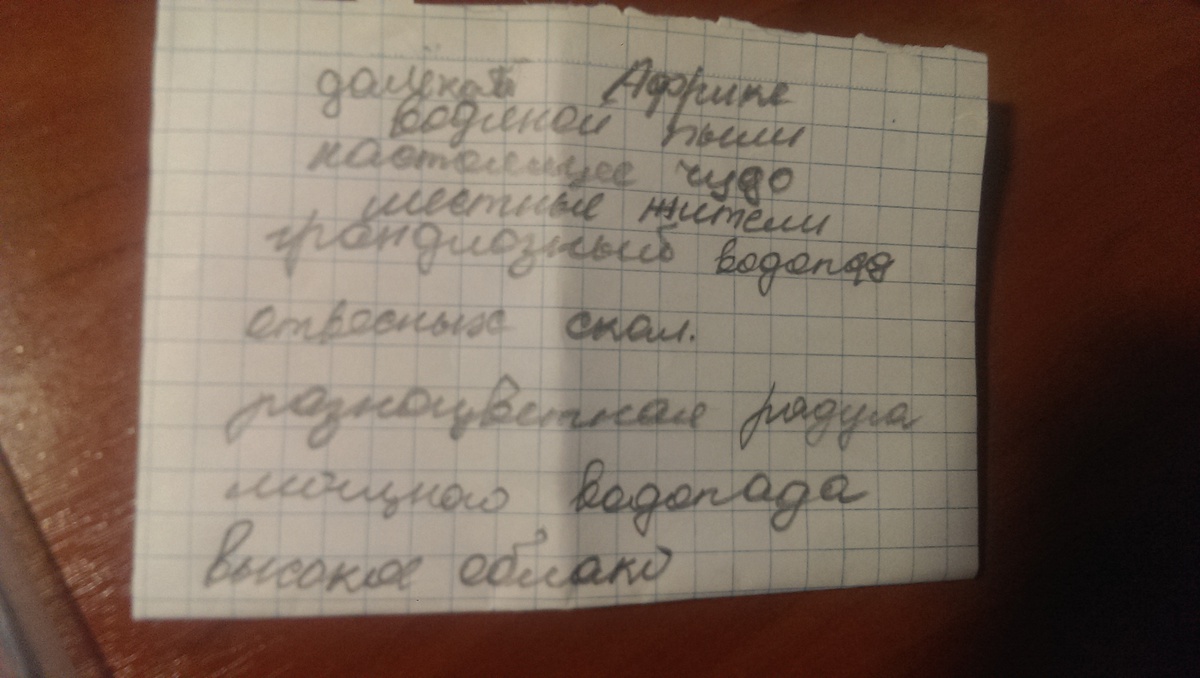 далёкой Африке
водяной пыли
настоящее чудо
местные жители
грандиозный водопад
отвесных скал.
разноцветная радуга
мощного водопада
высокое облако